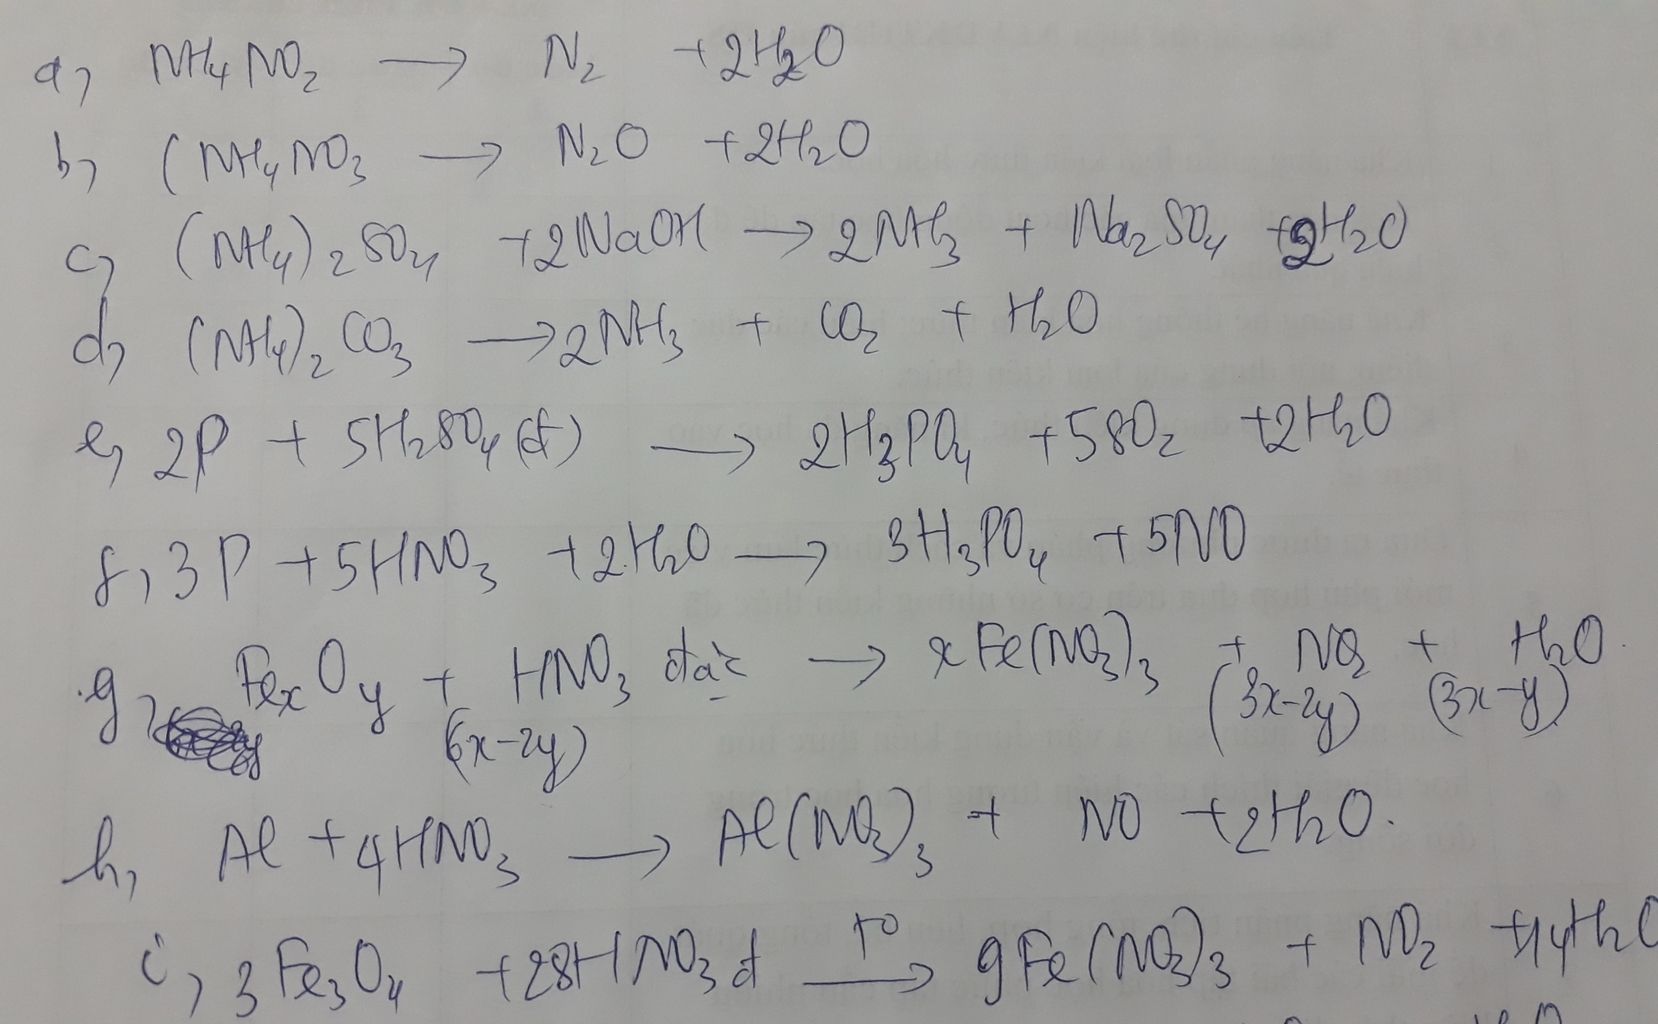 a, NH₄NO₂ → N₂ + 2H₂O
b, (NH₄NO₃ → N₂O + 2H₂O
c, (NH₄)₂SO₄ + 2NaOH → 2NH₃ + Na₂SO₄ + 2H₂O
d, (NH₄)₂CO₃ → 2NH₃ + CO₂ + H₂O
e, 2P + 5H₂SO₄(đ) → 2H₃PO₄ + 5SO₂ + 2H₂O
f, 3P + 5HNO₃ + 2H₂O → 3H₃PO₄ + 5NO
g, FeₓOy + HNO₃ đặc → xFe(NO₃)₃ + NO₂ + H₂O
(6x-2y) (3x-2y) (3x-y)
h, Al + 4HNO₃ → Al(NO₃)₃ + NO + 2H₂O.
i, 3Fe₃O₄ + 28HNO₃đ t⁰→ 9Fe(NO₃)₃ + NO₂ + 14H₂O